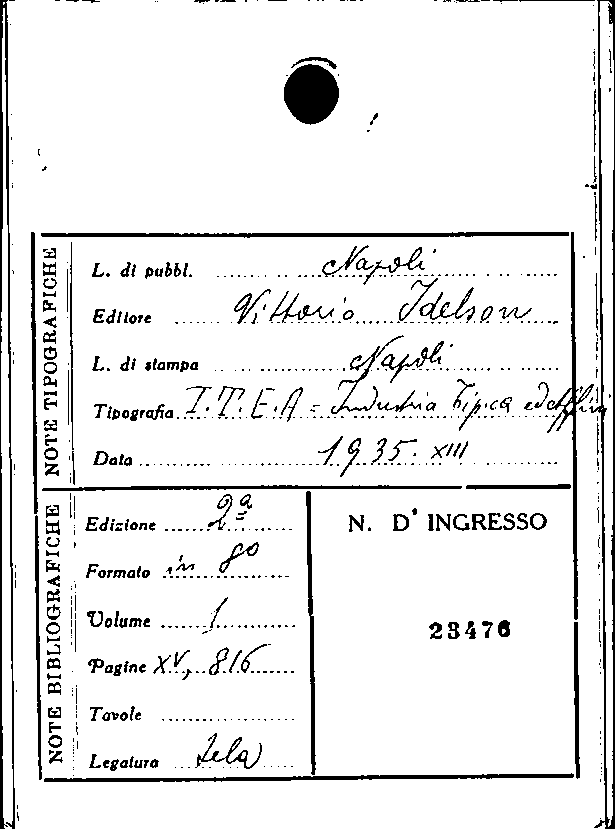 NOTE TIPOGRAFICHE
L. di pubbl. Napoli
Editore Vittorio Idelson
L. di stampa Napoli
Tipografia I.T.E.A = Industria Tip.ca ed Affini
Data 1935. XIII
NOTE BIBLIOGRAFICHE
Edizione 2ª
Formato in 8º
Volume 1
Pagine XV, 816
Tavole
Legatura tela
N. D' INGRESSO
23476